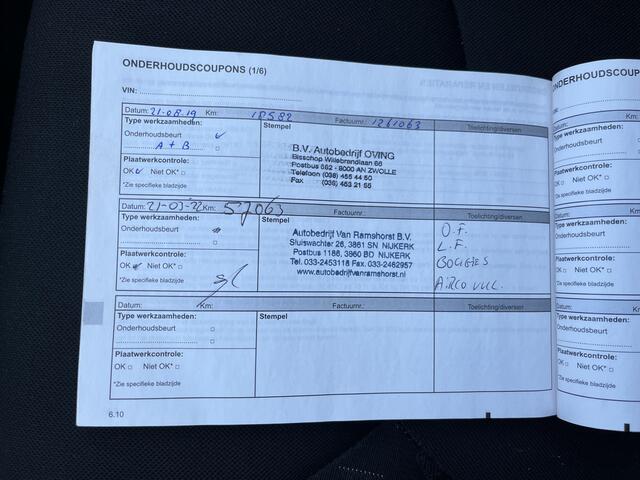 ONDERHOUDSCOUPONS (1/6)
VIN:
Datum: 21-08-19 Km: Factuurnr.: 1261063 Toelichting/diversen
Type werkzaamheden: Stempel
Onderhoudsbeurt
A + B
B.V. Autobedrijf OVING
Bisschop Willebrandlaan 66
Postbus 562 - 8000 AN ZWOLLE
Telefoon (038) 455 44 50
Fax (038) 453 21 55
Plaatwerkcontrole:
OK Niet OK*
*Zie specifieke bladzijde
Datum: 21-03-22 Km: 57063 Factuurnr.: Toelichting/diversen
Type werkzaamheden: Stempel
Onderhoudsbeurt
Autobedrijf Van Ramshorst B.V.
Sluiswachter 26, 3861 SN NIJKERK
Postbus 1186, 3860 BD NIJKERK
Tel. 033-2453118 Fax. 033-2462957
www.autobedrijfvanramshorst.nl
O.F.
L.F.
BOUGIES
AIRCO VUL.
Plaatwerkcontrole:
OK Niet OK*
*Zie specifieke bladzijde
Datum: Km: Factuurnr.: Toelichting/diversen
Type werkzaamheden: Stempel
Onderhoudsbeurt
Plaatwerkcontrole:
OK Niet OK*
*Zie specifieke bladzijde
6.10
ONDERHOUDSCOUPON
VIN:
Datum:
Type werkzaamheden:
Onderhoudsbeurt
Plaatwerkcontrole:
OK Niet OK*
*Zie specifieke bladzij
Datum:
Type werkzaamheden:
Onderhoudsbeurt
Plaatwerkcontrole:
OK Niet OK*
*Zie specifieke bladzijd
Datum:
Type werkzaamheden:
Onderhoudsbeurt
Plaatwerkcontrole:
OK Niet OK*
*Zie specifieke bladzijde